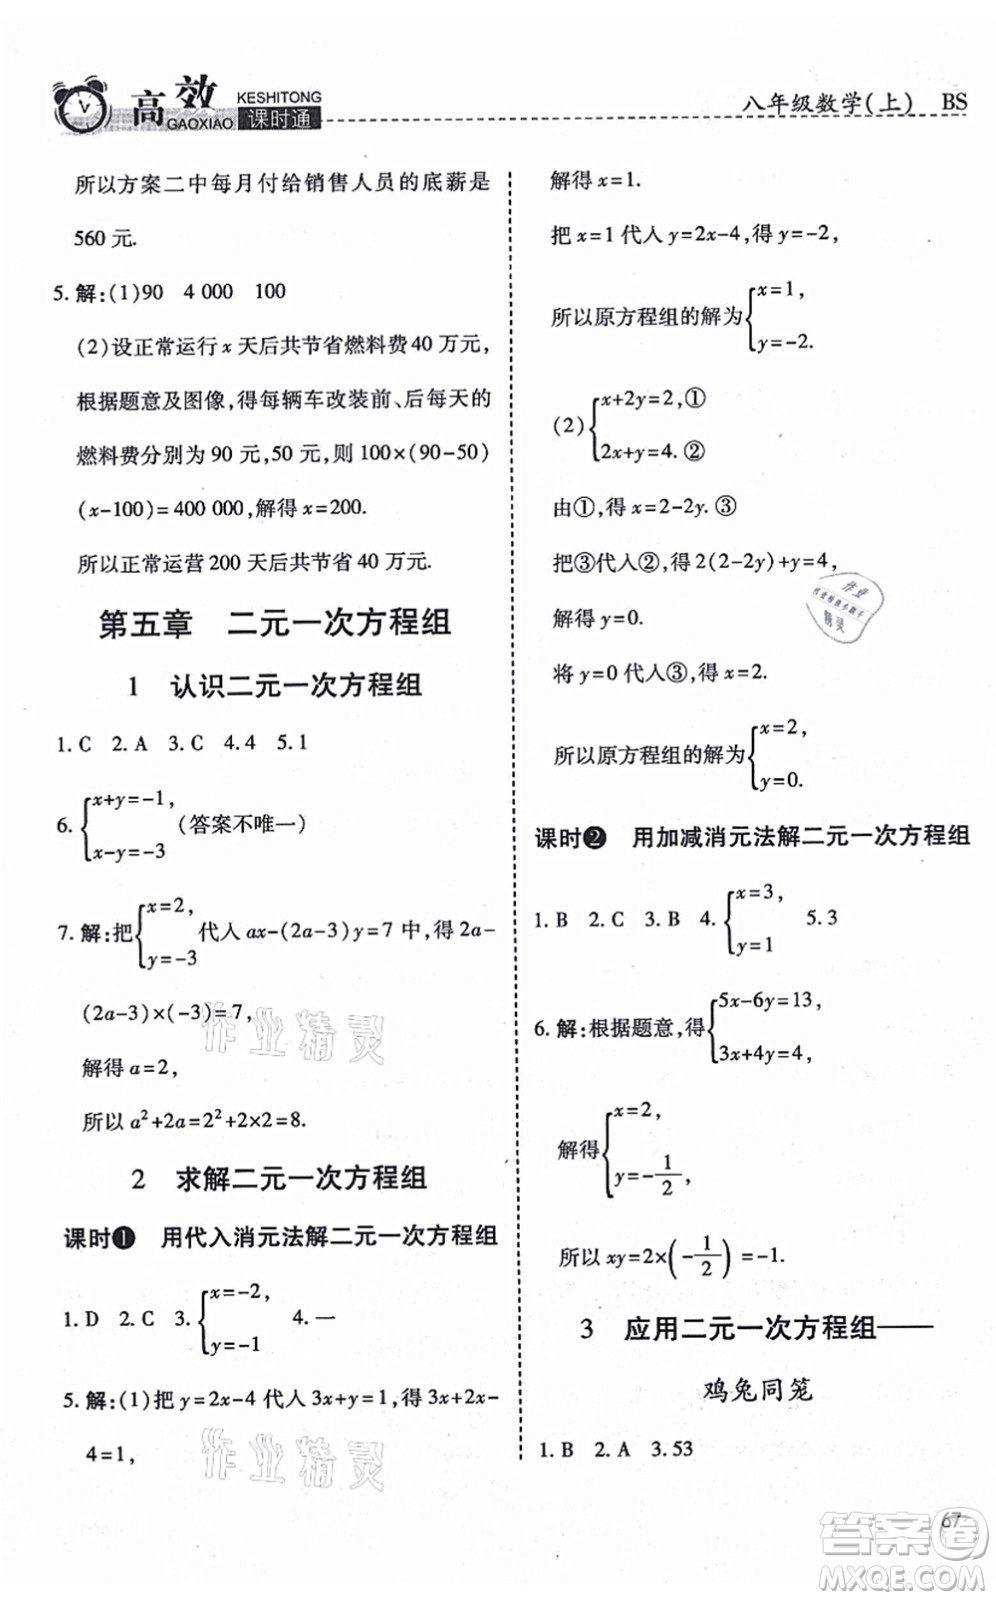 高效 KESHITONG
GAOXIAO 课时通
八年级数学(上) BS
所以方案二中每月付给销售人员的底薪是
560 元.
5. 解:(1)90 4 000 100
(2)设正常运行 x 天后共节省燃料费 40 万元,
根据题意及图像,得每辆车改装前、后每天的
燃料费分别为 90 元,50 元,则 100×(90-50)
(x-100)=400 000,解得 x=200.
所以正常运营 200 天后共节省 40 万元.
第五章 二元一次方程组
1 认识二元一次方程组
1. C 2. A 3. C 4. 4 5. 1
6. {x+y=-1,
x-y=-3 (答案不唯一)
7. 解:把{x=2,
y=-3 代人 ax-(2a-3)y=7 中,得 2a-
(2a-3)×(-3)=7,
解得 a=2,
所以 a²+2a=2²+2×2=8.
2 求解二元一次方程组
课时❶ 用代入消元法解二元一次方程组
1. D 2. C 3. {x=-2,
y=-1 4. 一
5. 解:(1)把 y=2x-4 代人 3x+y=1,得 3x+2x-
4=1,
解得 x=1.
把 x=1 代人 y=2x-4,得 y=-2,
所以原方程组的解为{x=1,
y=-2.
(2){x+2y=2,①
2x+y=4.②
由①,得 x=2-2y.③
把③代人②,得 2(2-2y)+y=4,
解得 y=0.
将 y=0 代人③,得 x=2.
所以原方程组的解为{x=2,
y=0.
课时❷ 用加减消元法解二元一次方程组
1. B 2. C 3. B 4. {x=3,
y=1 5. 3
6. 解:根据题意,得{5x-6y=13,
3x+4y=4,
解得{x=2,
y=-1/2,
所以 xy=2×(-1/2)=-1.
3 应用二元一次方程组——
鸡兔同笼
1. B 2. A 3. 53
67
作业精灵
作业精灵
答案圈
MXQE.COM